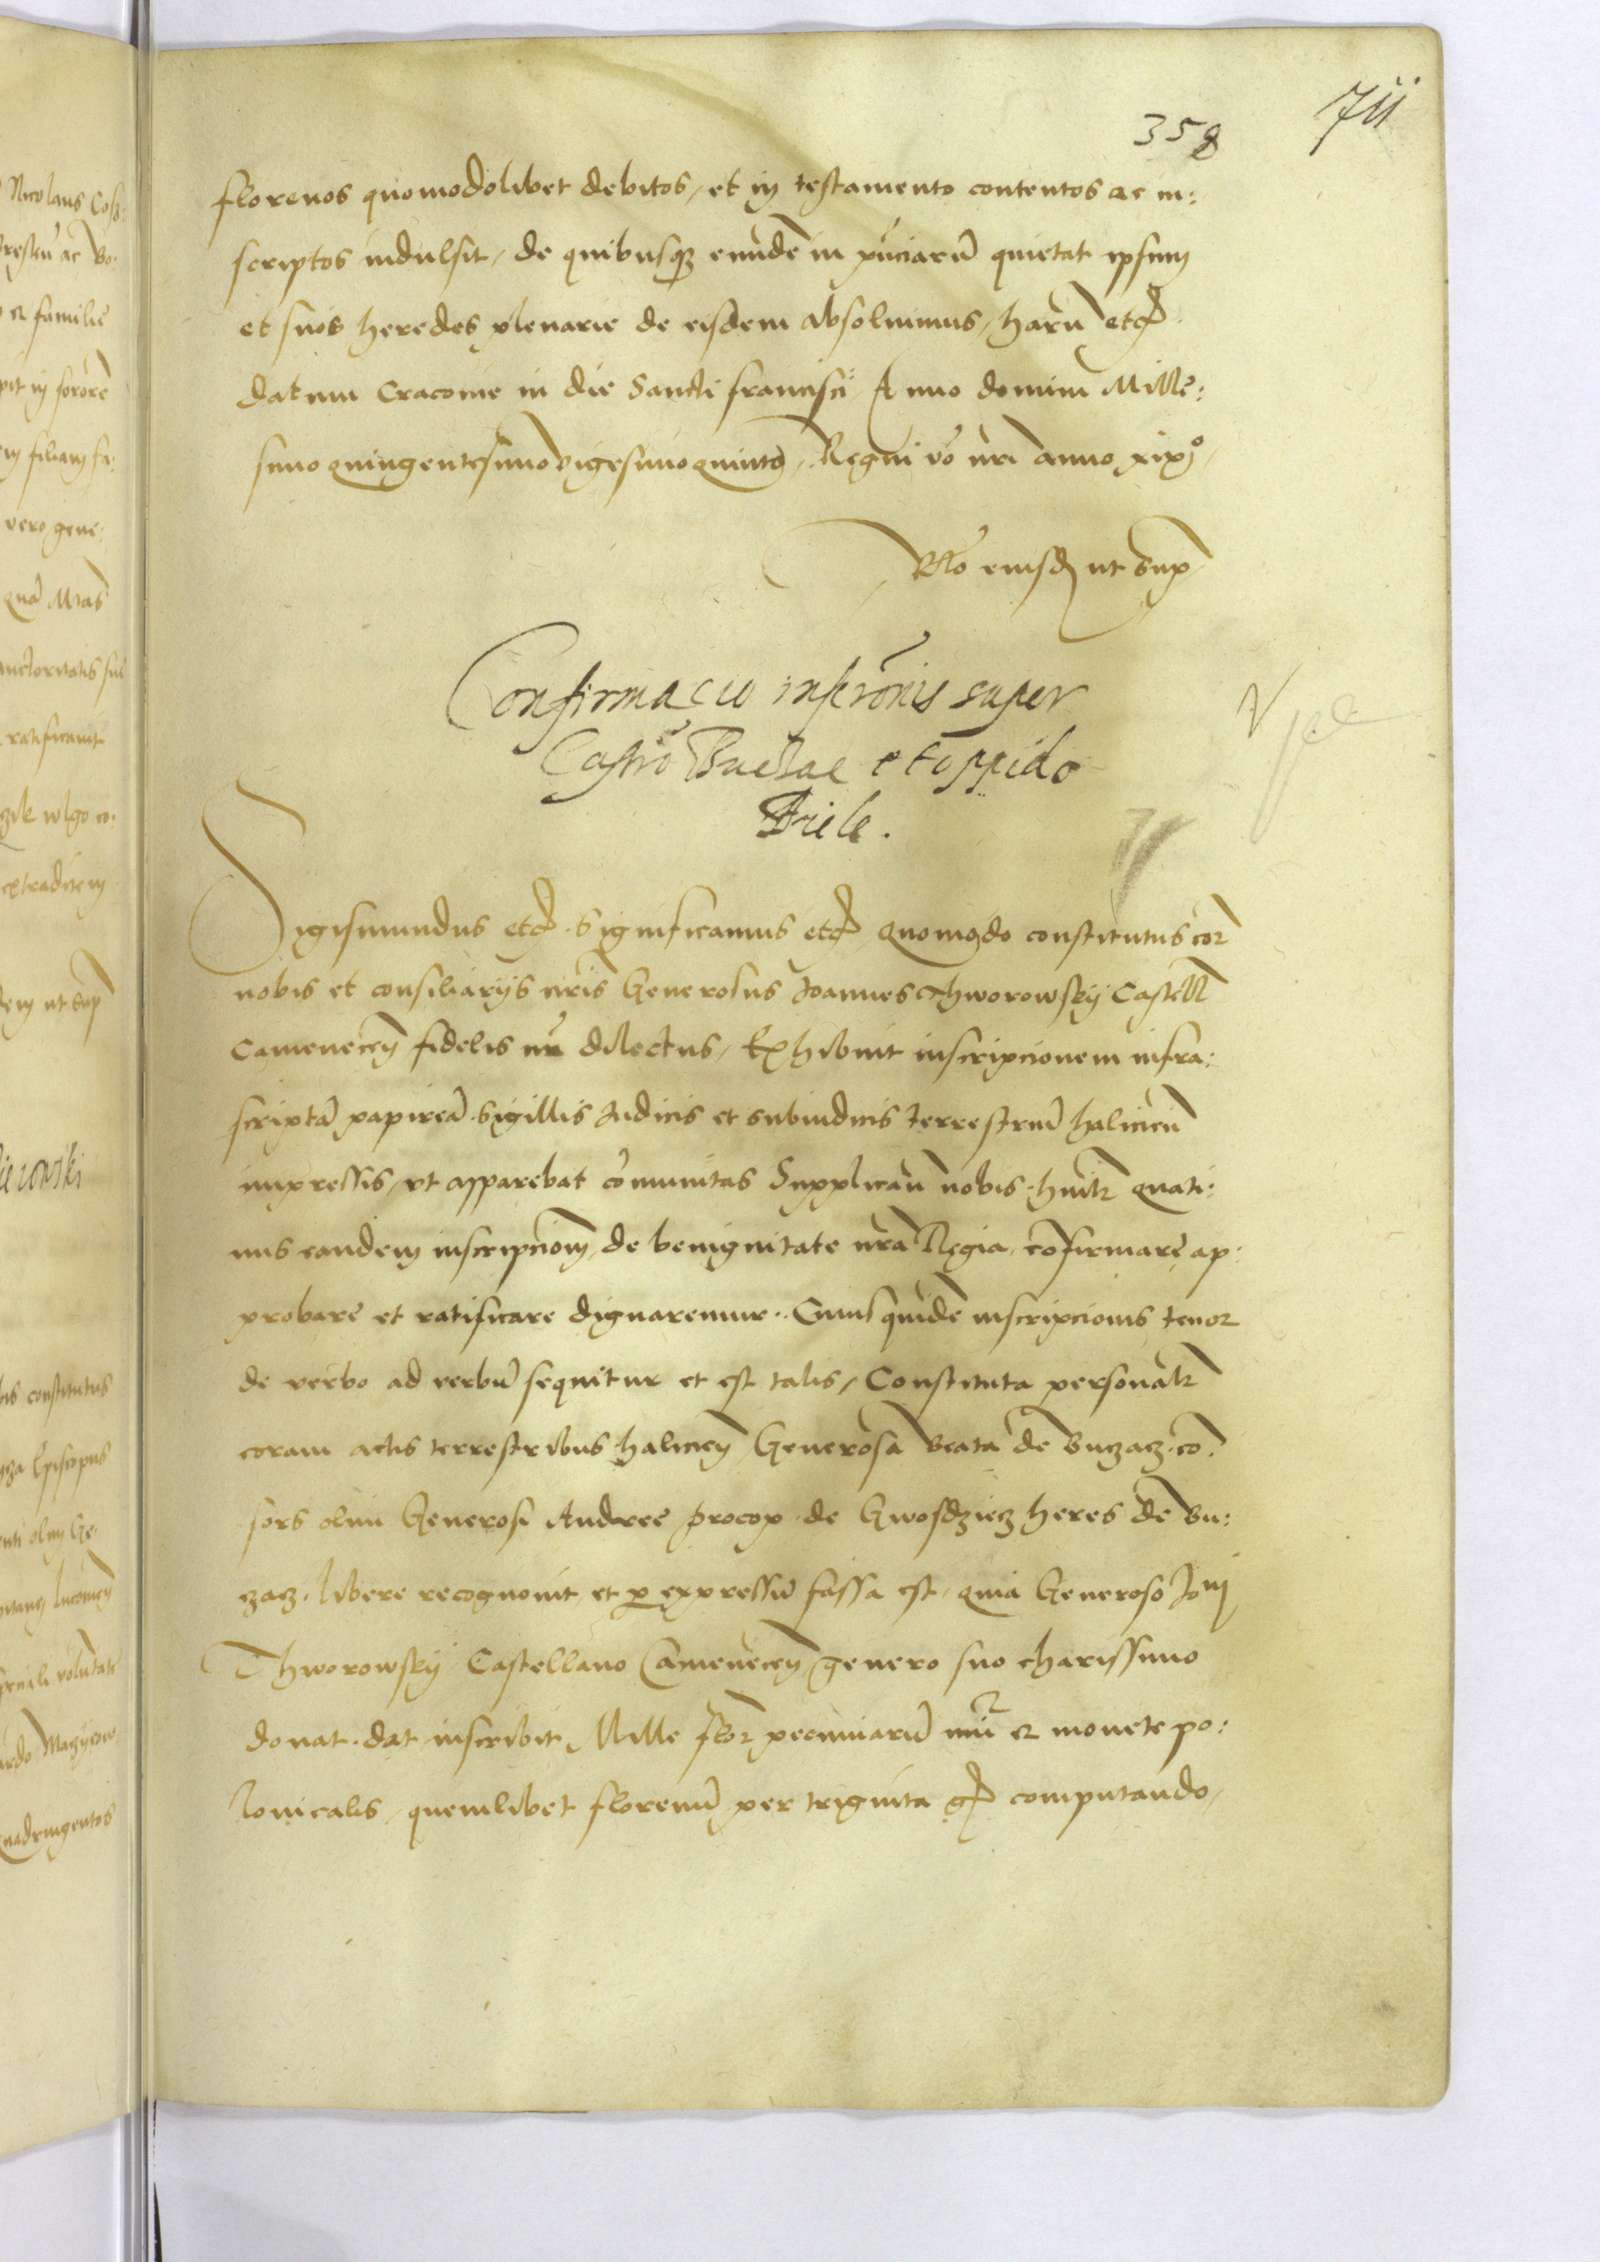 358
711
florenos quomodolibet debitos, et in testamento contentos ac in:
scriptos indulsit, de quibusq; eundē in pūciarū quietat ipsum
et suos heredes plenarie de eisdem absolvimus, harū etc
datum Cracovie in die Sancti francisci Anno domini Mille:
simo quingentesimo vigesimo quinto, Regni vō nri anno xix°
Rlo eiusd ut sup
Confirmacio inscrōnis super
Castro et oppido
Sigismundus etc. Significamus etc quomodo constitutus cor
nobis et consiliarijs nris Generosus Joannes Thworowskÿ Castell
Camenecen fidelis nr dilectus, Exhibuit inscripcionem infra:
scriptā papireā Sigillis Judicis et subiudicis terrestriū halicien
impressis, ut apparebat cōmunitas Supplicaū nobis humilr quati:
nus eandem inscripciom de benignitate nra Regia, cōfirmare ap:
probare et ratificare dignaremur. Cuius quidē inscripcionis tenor
de verbo ad verbū sequitur et est talis, Constituta personalr
coram actis terrestribus halicien Generosa Beata de Buczacz cō:
sors olim Generosi Andree procop de Gwosdziecz heres de Bu:
czacz, libere recognovit et p expressū fassa est, quia Generoso Joni
Thworowskÿ Castellano Camenecen genero suo charissimo
donat dat inscribit Mille flor pecuniarū nui et monete po:
lonicalis, quemlibet florenū per triginta gr computando,